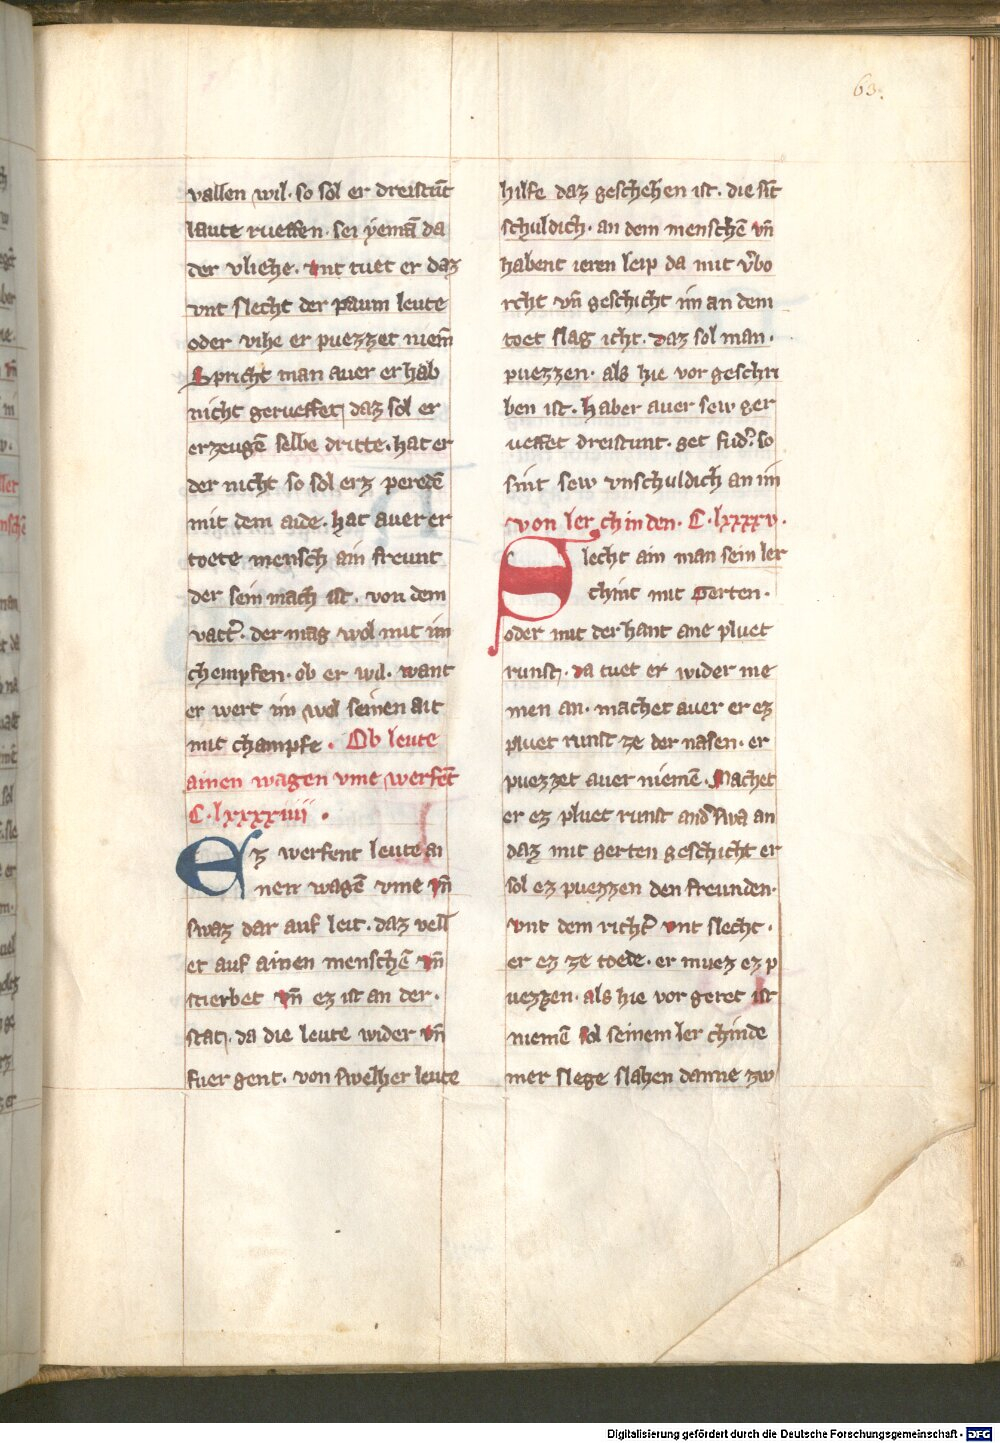 63.
vallen wil. so sol er dreistūt
laute rueffen. sei yemā da
der vliehe. vnt tuet er daz
vnt slecht der paum leute
oder vihe er puezzet niem̄
Spricht man auer er hab
nicht gerueffet daz sol er
erzeugē selbe dritte. hat er
der nicht so sol erz peredē
mit dem aide. hat auer er
toete mensch ain freunt
der sein mach ist. von dem
vatt͛. der mag wol mit im
chempfen. ob er wil. want
er wert im wol seinen ait
mit champfe. Ob leute
ainen wagen vme werfēt
C. lxxxxiiii.
Ez werfent leute ai
nen wagē vme vn̄
swaz dar auf leit. daz vell
et auf ainen menschē vn̄
stierbet vn̄ ez ist an der.
stat. da die leute wider vn̄
fuer gent. von swelher leute
hilfe daz geschehen ist. die sīt
schuldich. an dem menschē vn̄
habent ieren leip da mit v͛bo
rcht vn̄ geschicht im an dem
toet slag icht. daz sol man.
puezzen. als hie vor geschri
ben ist. haber auer sew ger
ueffet dreistunt. get fud͛. so
sint sew vnschuldich an im
von ler chinden. C. lxxxxv.
Slecht ain man sein ler
chint mit Gerten.
oder mit der hant ane pluet
runst. da tuet er wider nie
men an. machet auer er ez
pluet runst ze der nasen. er
puezzet auer niemē. Machet
er ez pluet runst and͛ swa an
daz mit gerten geschicht er
sol ez puezzen den freunden.
vnt dem richt͛ vnt slecht.
er ez ze toede. er muez ez p
uezzen. als hie vor geret ist
niemē sol seinem ler chinde
mer slege slahen danne zw
Digitalisierung gefördert durch die Deutsche Forschungsgemeinschaft - DFG